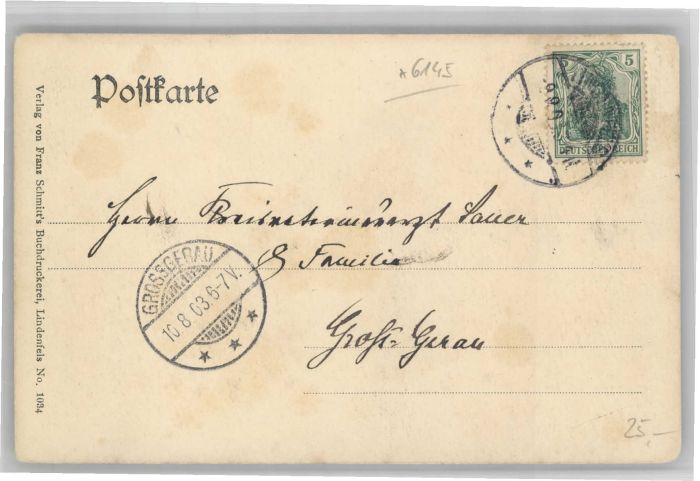 *6145
Postkarte
5
DEUTSCHES REICH
Herrn Kreisveterinärarzt Sauer
& Familie
Gross-Gerau
GROSSGERAU
10.8.03.6-7V.
25,-
Verlag von Franz Schmitt's Buchdruckerei, Lindenfels No. 1034